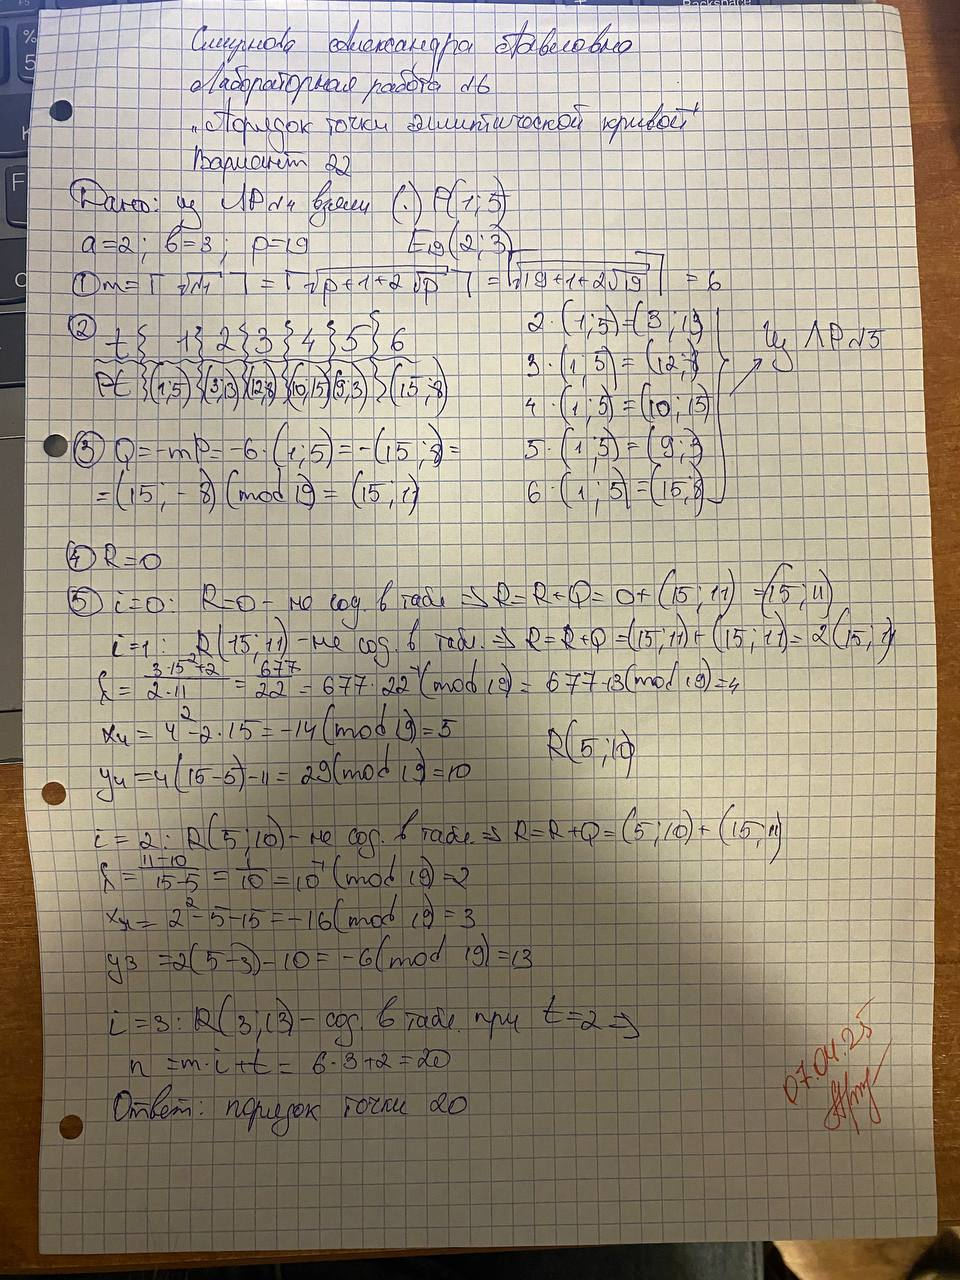 Смирнова Александра Павловна
Лабораторная работа №6
"Порядок точки эллиптической кривой"
Вариант 22
Дано: из ЛР№4 взяли (·) P(1;5)
a=2; b=3; p=19 E₁₉(2;3)
① m=⌈√n⌉ = ⌈√(p+1+2√p)⌉ = ⌈√(19+1+2√19)⌉ = 6
② t 1 2 3 4 5 6
Pt (1;5) (3;13) (12;8) (10;15) (9;3) (15;8)
2·(1;5)=(3;13)
3·(1;5)=(12;8)
4·(1;5)=(10;15)
5·(1;5)=(9;3)
6·(1;5)=(15;8)
из ЛР№5
③ Q=-mP=-6·(1;5)=-(15;8)=
=(15;-8)(mod 19)=(15;11)
④ R=0
⑤ i=0: R=0 - не сод. в табл ⇒ R=R+Q=0+(15;11)=(15;11)
i=1: R(15;11) - не сод. в табл. ⇒ R=R+Q=(15;11)+(15;11)=2(15;11)
λ = (3·15²+2)/(2·11) = 677/22 = 677·22⁻¹(mod 19) = 677·13(mod 19)=4
x₄ = 4²-2·15=-14(mod 19)=5
R(5;10)
y₄ =4(15-5)-11=29(mod 19)=10
i=2: R(5;10) - не сод. в табл ⇒ R=R+Q=(5;10)+(15;11)
λ = (11-10)/(15-5) = 1/10 = 10⁻¹(mod 19)=2
x₄ = 2²-5-15=-16(mod 19)=3
y₃ =2(5-3)-10=-6(mod 19)=13
i=3: R(3;13) - сод. в табл. при t=2 ⇒
n =m·i+t = 6·3+2=20
Ответ: порядок точки 20
07.04.25